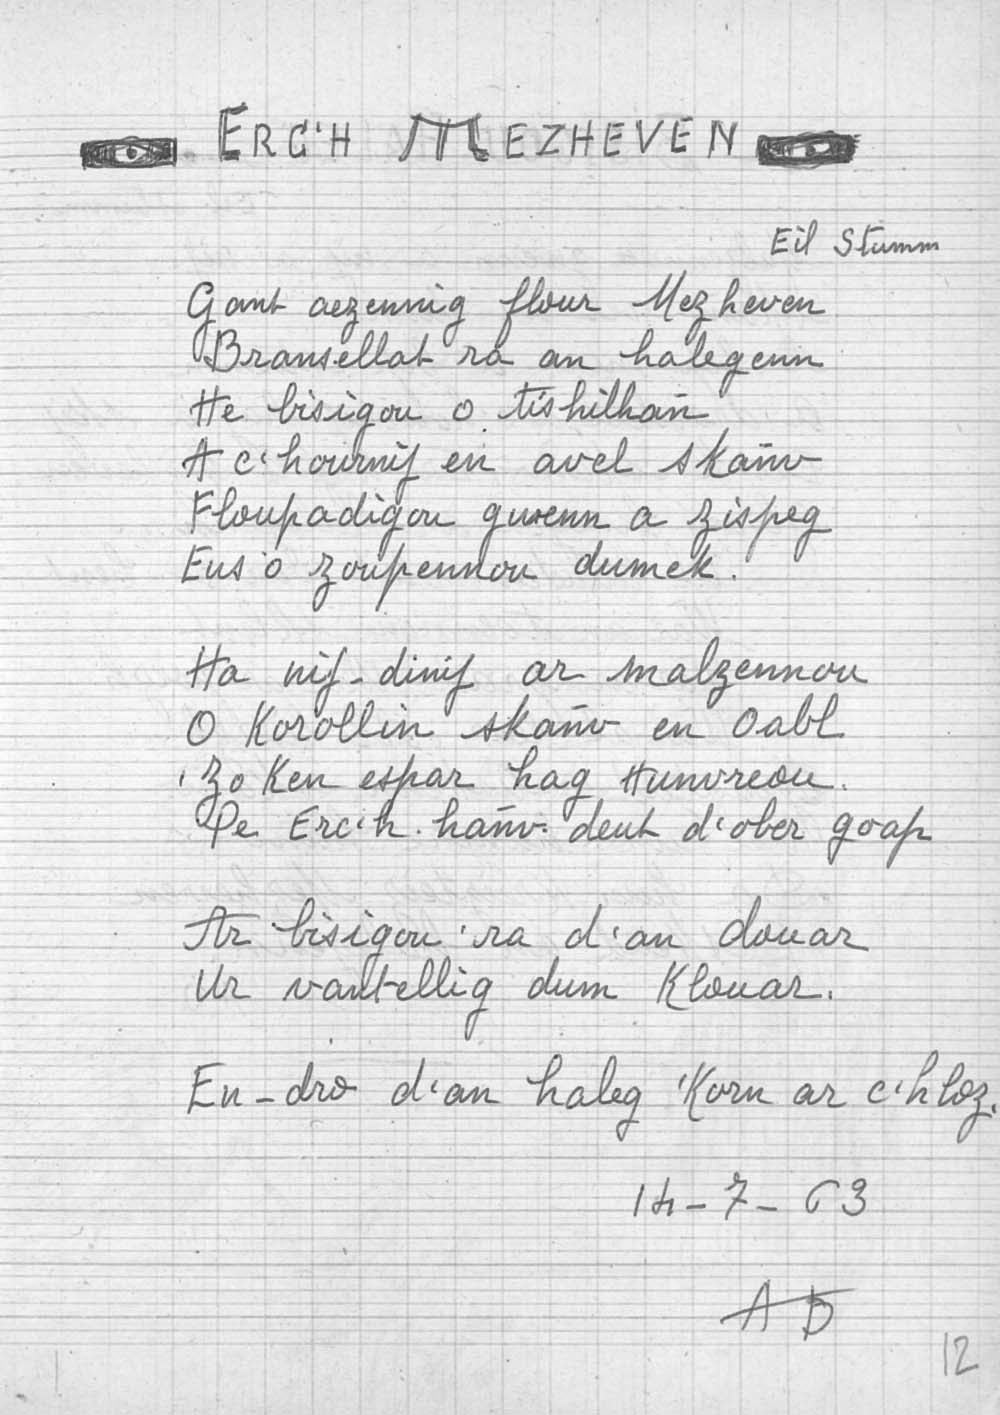 ERC'H MEZHEVEN
Eil Stumm
Gant aezennig flour Mezheven
Bransellat ra an halegenn
He bisigou o tishilhañ
A c'hournij en avel skañv
Floupadigou gwenn a zispeg
Eus o zoupennou dumek.
Ha nij-dinij ar malzennou
O Korollin skañv en Oabl
'Zo Ken espar hag Hunvreou.
Pe Erc'h hañv deut d'ober goap
Ar bisigou 'ra d'an douar
Ur vantellig dum Klouar.
En-dro d'an haleg 'Korn ar c'hloz.
14-7-63
AB
12